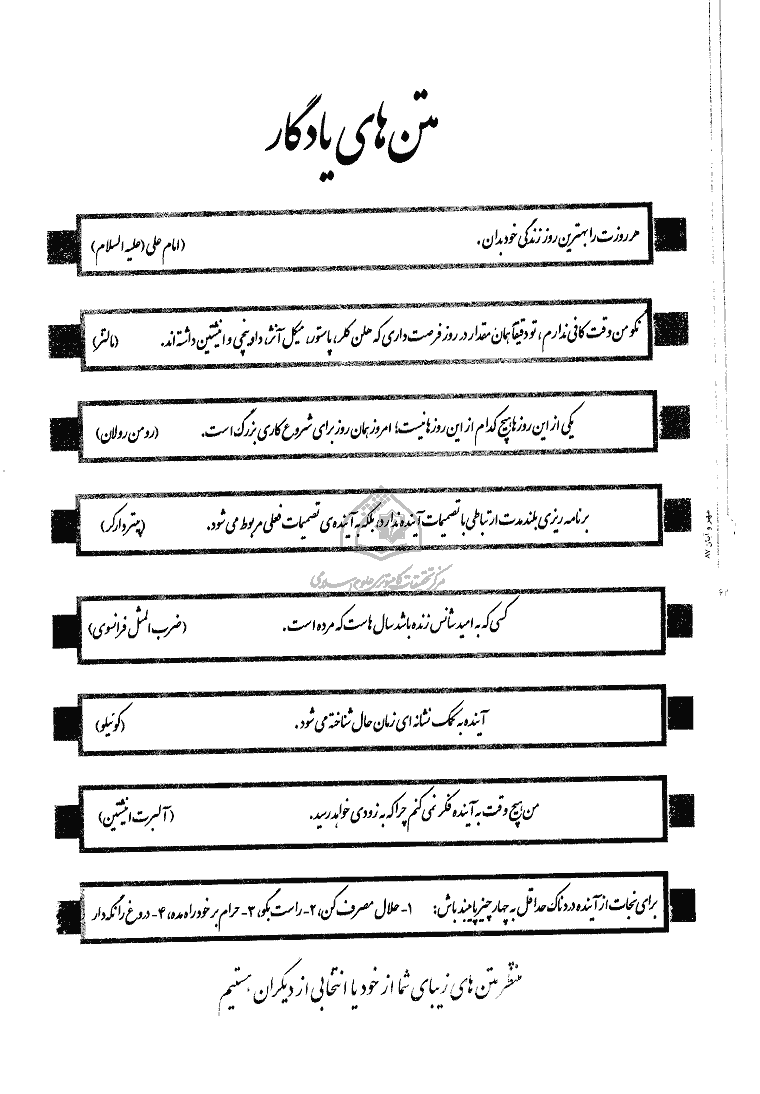 متن های یادگار
هر روزت را بهترین روز زندگی خود بدان. (امام علی (علیه السلام)
نگو من وقت کافی ندارم، تو دقیقاً همان مقدار در روز فرصت داری که هلن کلر، پاستور، میکل آنژ، داوینچی و انیشتین داشته اند. (مالتز)
یکی از این روزها هیچ کدام از این روزها نیست؛ امروز همان روز برای شروع کاری بزرگ است. (رومن رولان)
برنامه ریزی بلند مدت ارتباطی با تصمیمات آینده ندارد بلکه به آینده ی تصمیمات فعلی مربوط می شود. (پیتر دارکر)
مرکز تحقیقات کامپیوتری علوم اسلامی
کسی که به امید شانس زنده باشد سال هاست که مرده است. (ضرب المثل فرانسوی)
آینده به کمک نشانه ای زمان حال شناخته می شود. (کوئیلو)
من هیچ وقت به آینده فکر نمی کنم چرا که به زودی خواهد رسید. (آلبرت انیشتین)
برای نجات از آینده دردناک حداقل به چهار چیز پایبند باش: ۱- حلال مصرف کن، ۲- راست بگو، ۳- حرام بر خود راه مده، ۴- دروغ را نگه دار
منتظر متن های زیبای شما از خود یا انتخابی از دیگران هستیم
مهر و آبان ۸۷